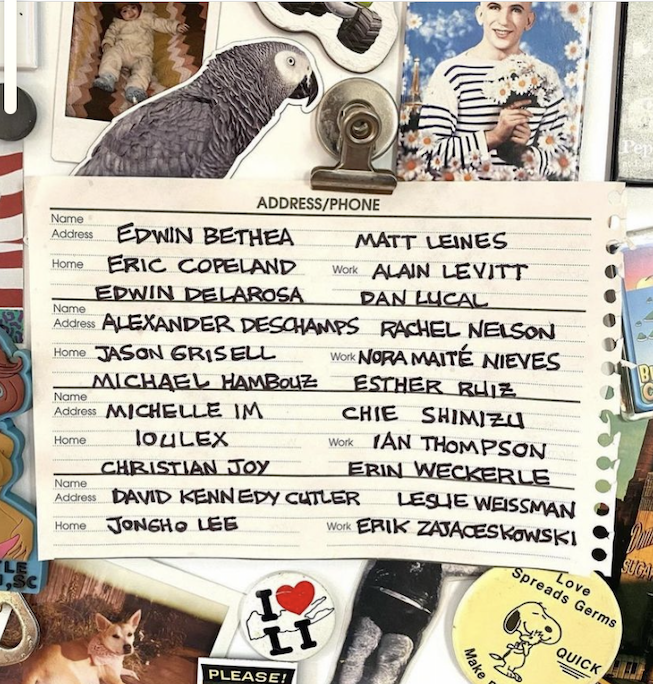 ADDRESS/PHONE
Name
Address EDWIN BETHEA MATT LEINES
Home ERIC COPELAND Work ALAIN LEVITT
EDWIN DELAROSA DAN LUCAL
Name
Address ALEXANDER DESCHAMPS RACHEL NELSON
Home JASON GRISELL Work NORA MAITÉ NIEVES
MICHAEL HAMBOUZ ESTHER RUIZ
Name
Address MICHELLE IM CHIE SHIMIZU
Home IOULEX Work IAN THOMPSON
CHRISTIAN JOY ERIN WECKERLE
Name
Address DAVID KENNEDY CUTLER LESLIE WEISSMAN
Home JONGHO LEE Work ERIK ZAJACESKOWSKI
I ❤ LI
PLEASE!
Love
Spreads Germs
QUICK
Make